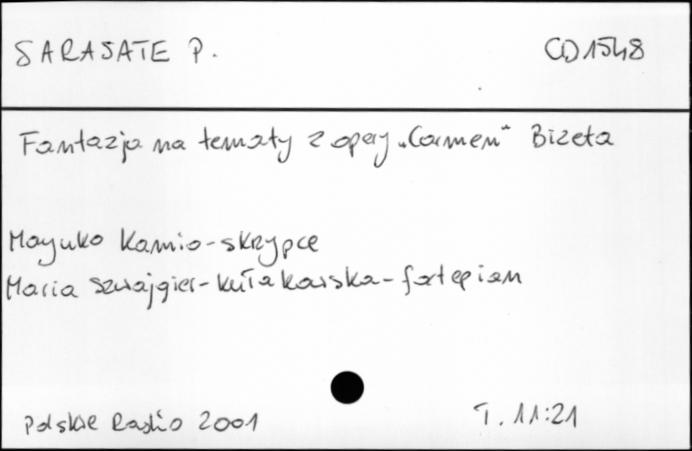 SARASATE P. CD 1548
Fantazja na tematy z opery „Carmen" Bizeta
Mayuko Kamio - skrzypce
Maria Szwajgier-Kułakowska - fortepian
Polskie Radio 2001 T. 11:21